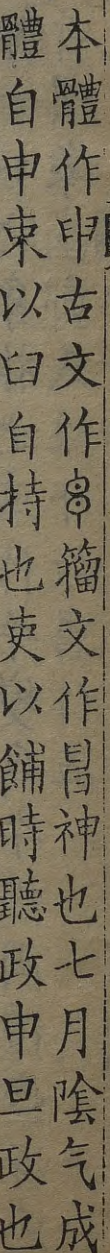 本體作申古文作𢑚籀文作昌神也七月陰气成
體自申束以臼自持也吏以餔時聽政申旦政也